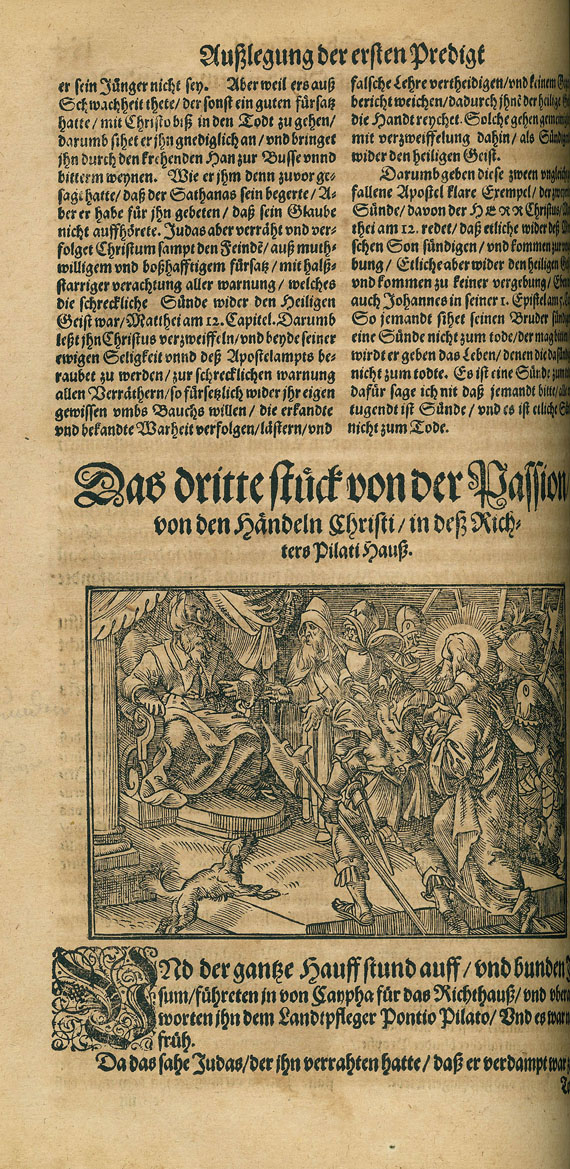 Außlegung der ersten Predigt
er sein Jünger nicht sey. Aber weil ers auß
Schwachheit thete/ der sonst ein guten fürsatz
hatte/ mit Christo biß in den Todt zu gehen/
darumb sihet er jhn gnediglich an/ vnd bringet
jhn durch den krehenden Han zur Busse vnnd
bitterm weynen. Wie er jhm denn zuvor ge-
sagt hatte/ daß der Sathanas sein begerte/ A-
ber er habe für jhn gebeten/ daß sein Glaube
nicht auffhörete. Judas aber verräht vnd ver-
folget Christum sampt den Feindẽ/ auß muth-
willigem vnd boßhafftigem fürsatz/ mit halß-
starriger verachtung aller warnung/ welches
die schreckliche Sünde wider den Heiligen
Geist war/ Matthei am 12. Capitel. Darumb
leßt jhn Christus verzweiffeln/ vnd beyde seiner
ewigen Seligkeit vnnd deß Apostelampts be-
raubet zu werden/ zur schrecklichen warnung
allen Verräthern/ so fürsetzlich wider jhr eigen
gewissen vmbs Bauchs willen/ die erkandte
vnd bekandte Warheit verfolgen/ lästern/ vnd
falsche Lehre vertheidigen/ vnd keinem
bericht weichen/ dadurch jhnẽ der heilige
die Handt reychet. Solche gehen
mit verzweiffelung dahin/ als
wider den heiligen Geist.
Darumb geben diese zween
fallene Apostel klare Exempel/
Sünde/ davon der HERR Christus/
thei am 12. redet/ daß etliche wider
schen Son sündigen/ vnd kommen
bung/ Etliche aber wider den heiligen
vnd kommen zu keiner vergebung/
auch Johannes in seiner 1. Epistel am
So jemandt sihet seinen Bruder
eine Sünde nicht zum tode/ der mag
wirdt er geben das Leben/ denen die da
nicht zum todte. Es ist eine Sünde
dafür sage ich nit daß jemandt bitte/
tugendt ist Sünde/ vnd es ist etliche
nicht zum Tode.
Das dritte stück von der Passion
von den Händeln Christi/ in deß Rich-
ters Pilati Hauß.
VNd der gantze Hauff stund auff/ vnd bunden
sum/ führeten jn von Caypha für das Richthauß/ vnd
worten jhn dem Landtpfleger Pontio Pilato/ Vnd es war
früh.
Da das sahe Judas/ der jhn verrahten hatte/ daß er verdampt war